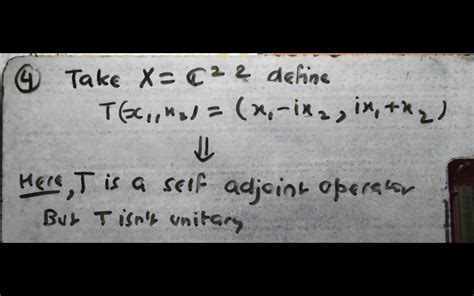 ④ Take X = ℂ² & define
T(x₁, x₂) = (x₁-ix₂, ix₁+x₂)
⇓
Here, T is a self adjoint operator
But T isn't unitary